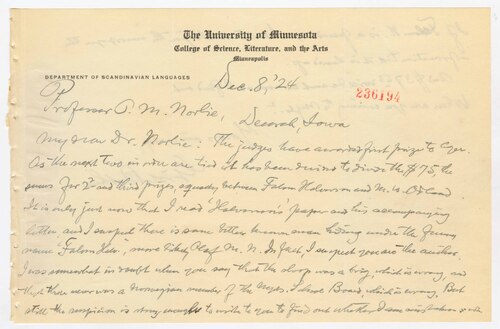 The University of Minnesota
College of Science, Literature, and the Arts
Minneapolis
DEPARTMENT OF SCANDINAVIAN LANGUAGES
Dec. 8, '24
236194
Professor O. M. Norlie,
Decorah, Iowa
My dear Dr. Norlie: The judges have awarded first prize to
As the next two in order are tied it has been decided to divide the $75, the
sums for 2d and third prizes equally between Falom Halvorson and M. W. Odland.
It is only just now that I read "Halvorson's" paper and his accompanying
letter, and I suspect there is some better known man hiding under the funny
name "Falom Hal", more likely Olaf M. N. In fact, I suspect you are the author.
I was somewhat in doubt when you say that the sloop was a brig, which is wrong, and
that there never was a Norwegian member of the which is wrong. But
still the suspicion is strong enough to write to you to find out whether I am mistaken or